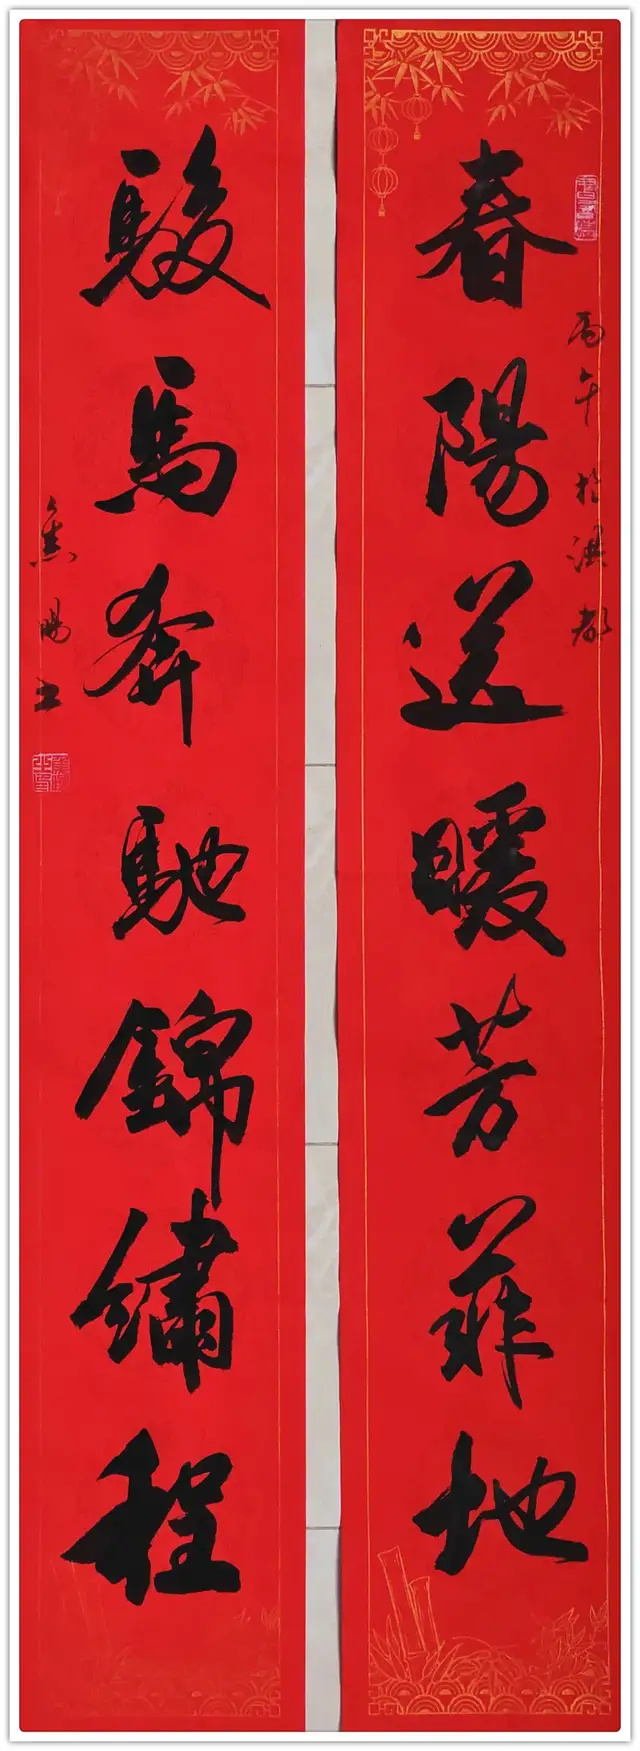 春陽送暖芳菲地
丙午於洪都
駿馬奔馳錦繡程
焦陽书